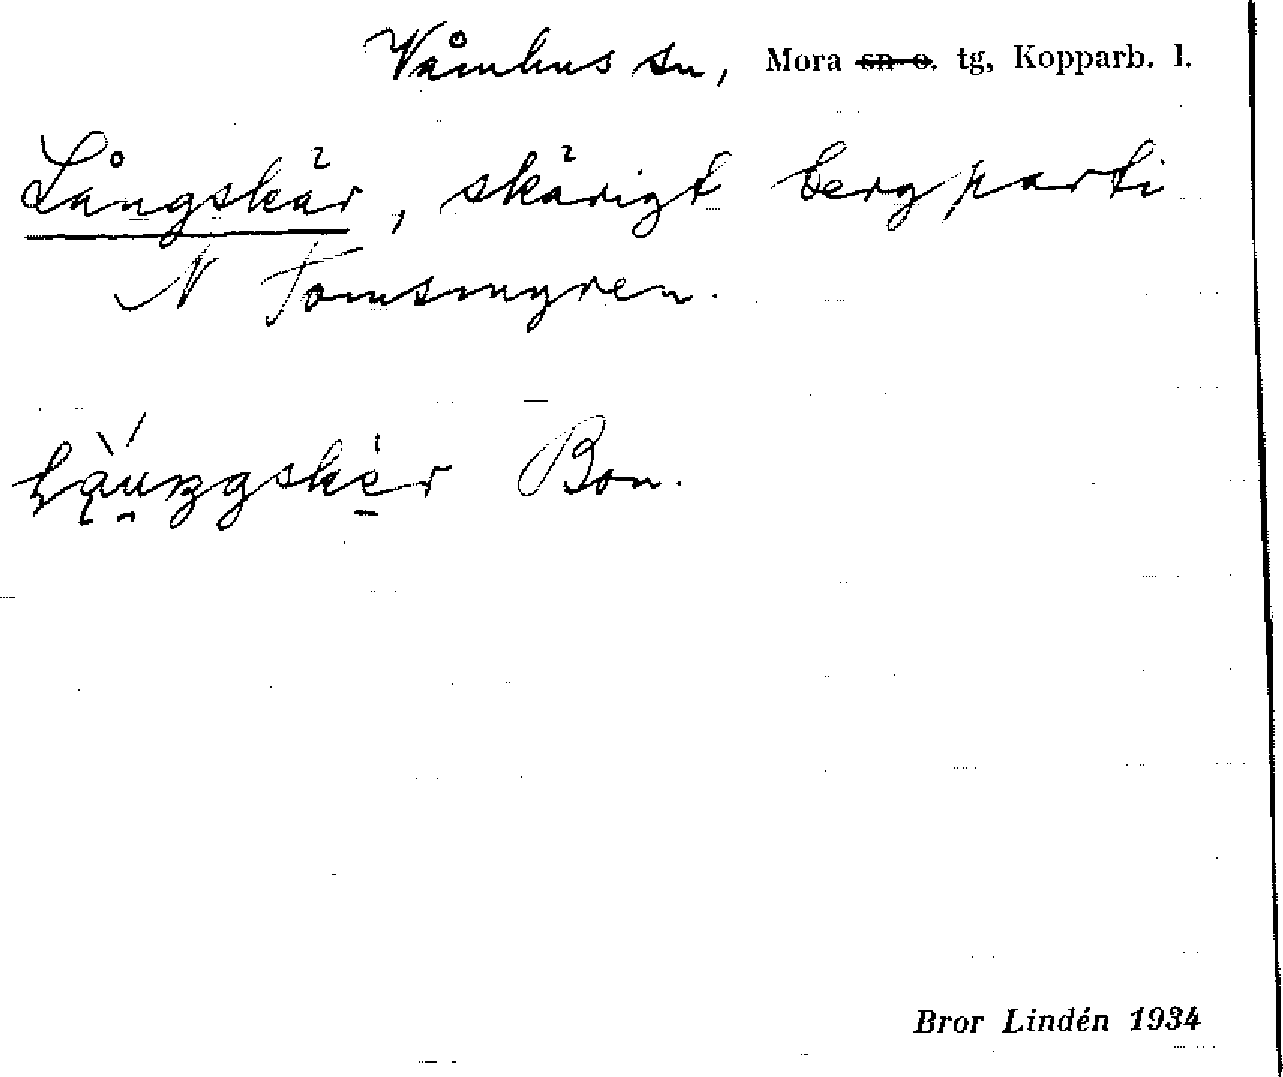 Våmhus sn, Mora sn o. tg, Kopparb. l.
Långskär, skärigt bergparti
N Tomsmyren.
Bon.
Bror Lindén 1934